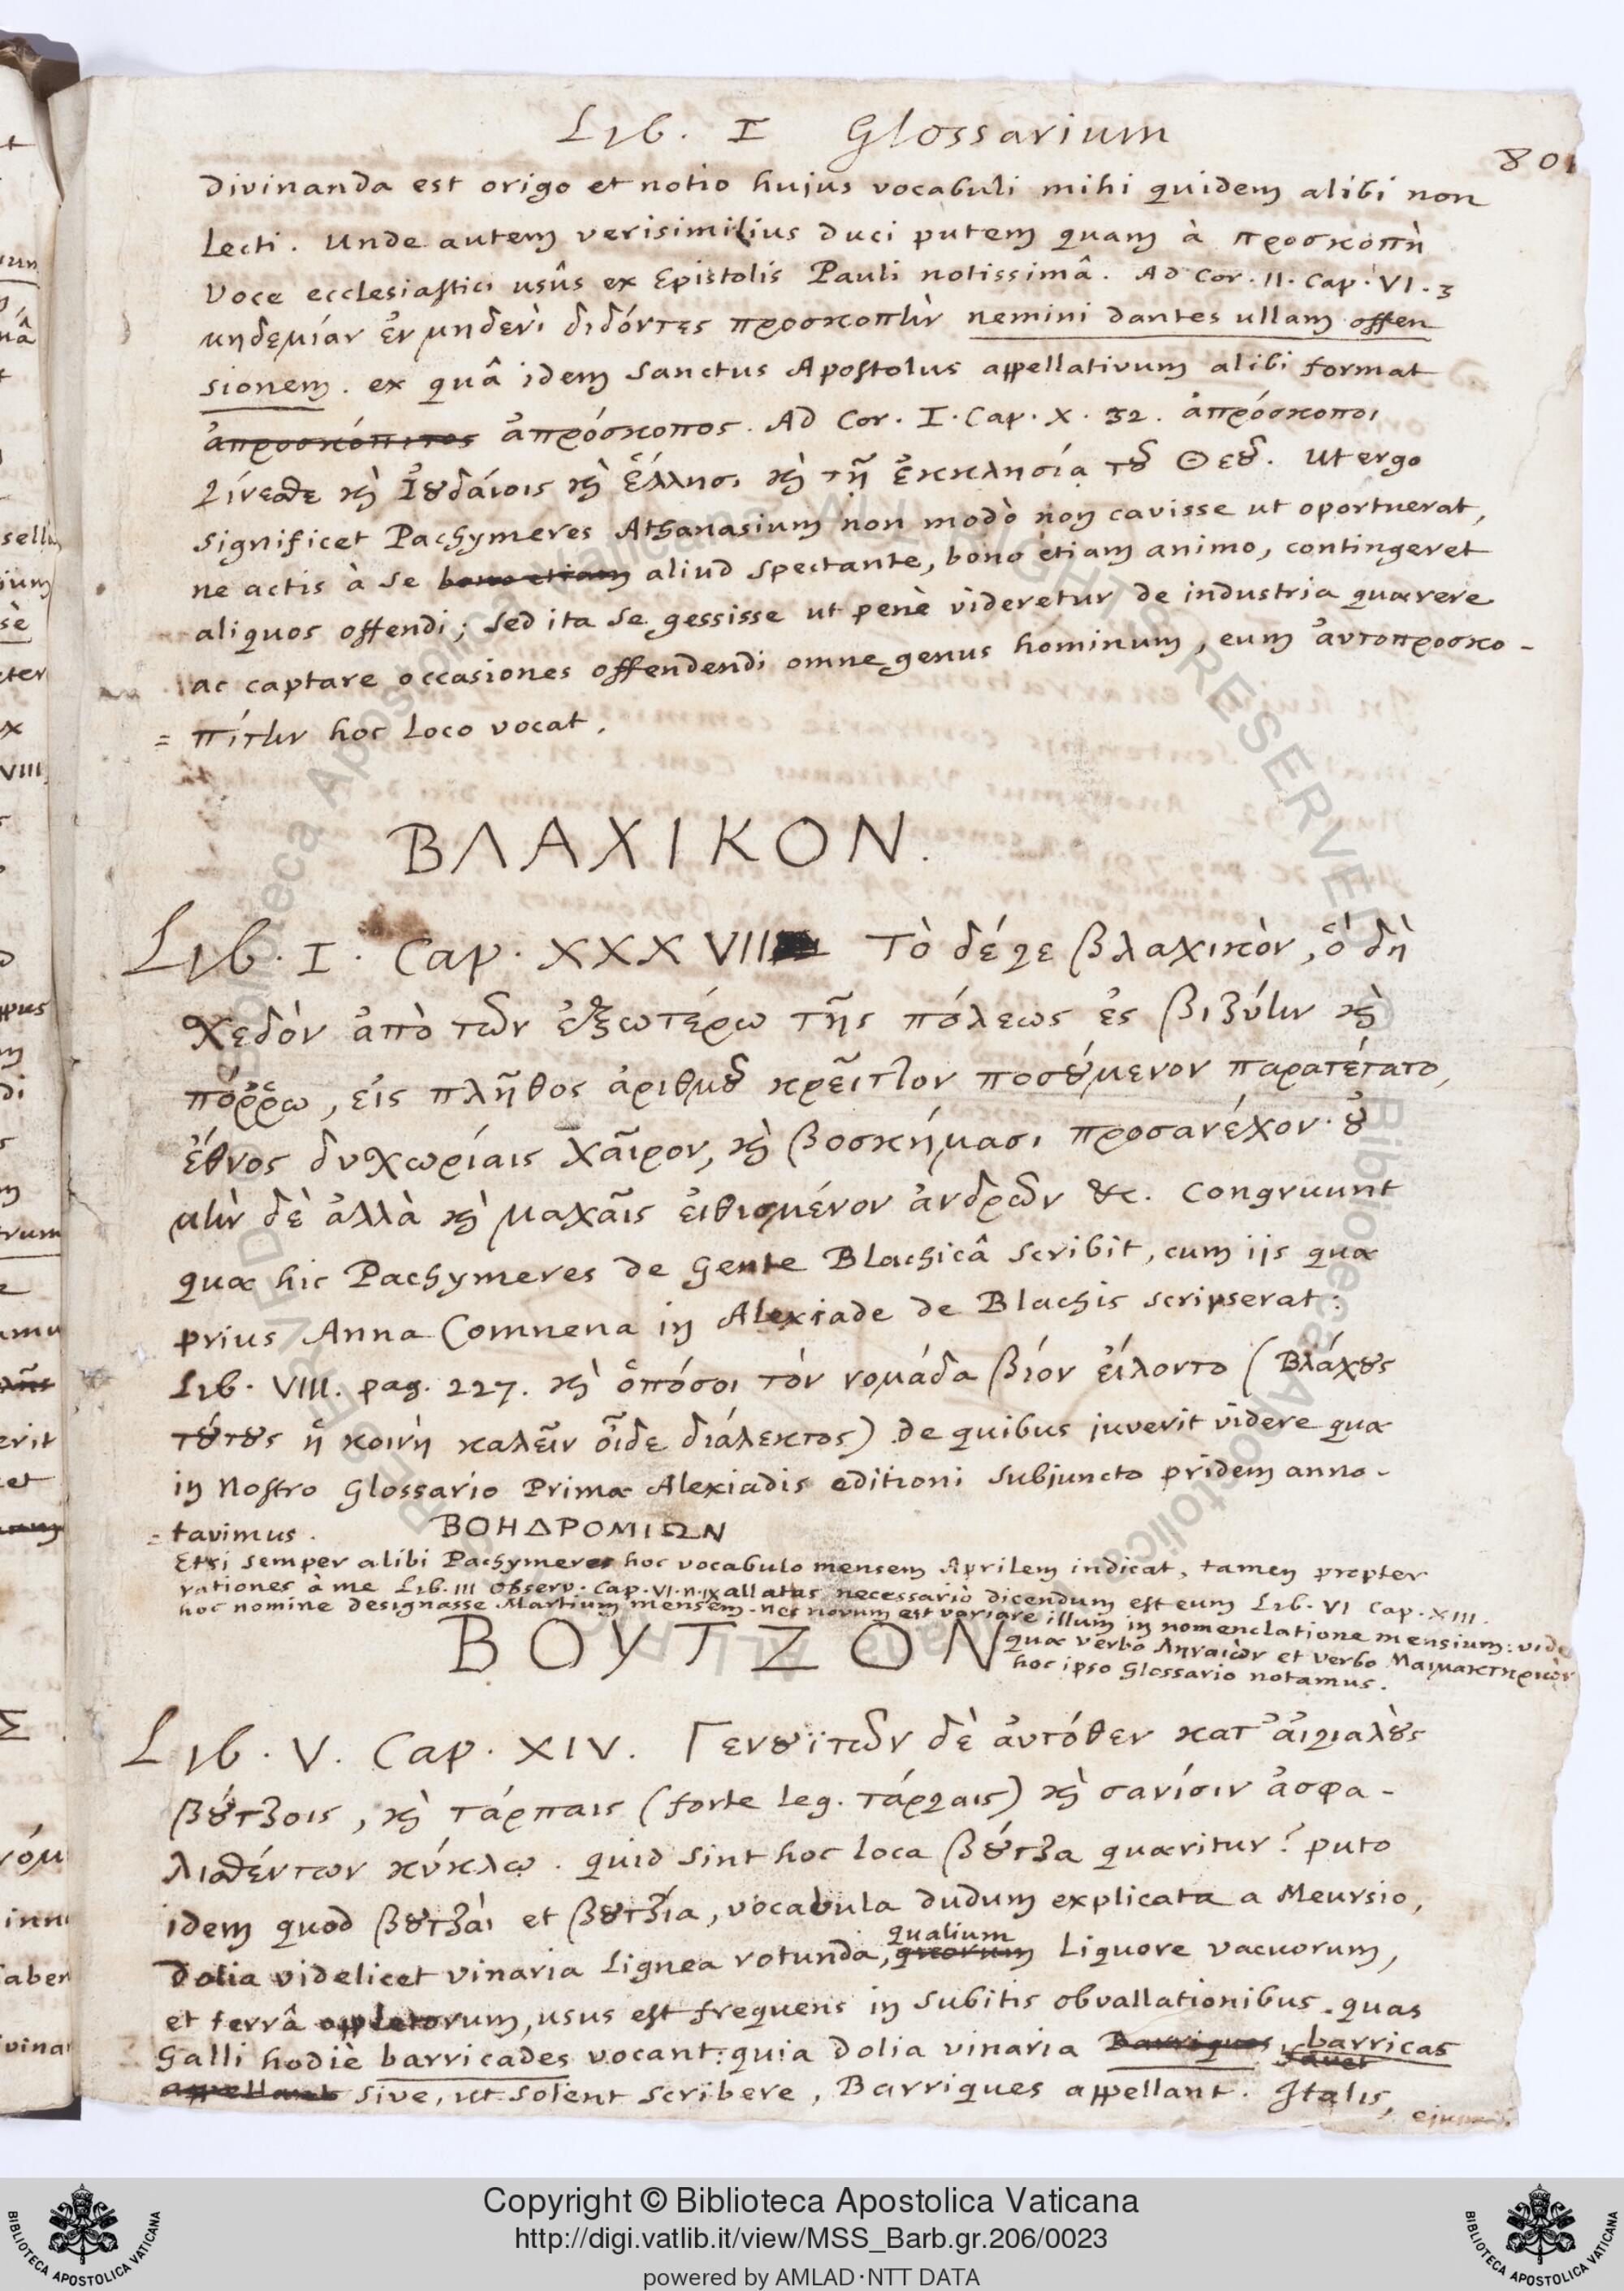 Lib. I Glossarium
801
Divinanda est origo et notio hujus vocabuli mihi quidem alibi non
Lecti. Unde autem verisimilius duci putem quam à προσκοπὴ
Voce ecclesiastici usûs ex Epistolis Pauli notissimâ. Ad Cor. II. Cap. VI. 3
μηδεμίαν ἐν μηδενὶ διδόντες προσκοπὴν nemini dantes ullam offen
sionem. ex quâ idem Sanctus Apostolus appellativum alibi format
ἀπρόσκοπος. Ad Cor. I. Cap. X. 32. ἀπρόσκοποι
γίνεσθε καὶ Ἰουδαίοις καὶ ἕλλησι καὶ τῇ ἐκκλησίᾳ τοῦ Θεοῦ. Ut ergo
significet Pachymeres Athanasium non modò non cavisse ut oportuerat,
ne actis à se bono etiam aliud spectante, bono etiam animo, contingeret
aliquos offendi; sed ita se gessisse ut penè videretur de industria quærere
ac captare occasiones offendendi omne genus hominum, eum ἀυτοπροσκο-
= πίτην hoc loco vocat.
ΒΛΑΧΙΚΟΝ.
Lib. I. Cap. XXXVII Τὸ δέ γε βλαχικὸν, ὃ δὴ
σχεδὸν ἀπὸ τῶν ἐξωτέρω τῆς πόλεως ἐς βιζύην καὶ
πόῤῥω, εἰς πλῆθος ἀριθμοῦ κρεῖττον ποσούμενον παρατέτατο,
ἔθνος δυσχωρίαις χαῖρον, καὶ βοσκήμασι προσανέχον. οὐ
μὴν δὲ ἀλλὰ καὶ μαχαῖς εἰθισμένον ἀνδρῶν &c. Congruunt
quæ hic Pachymeres de Gente Blachicâ scribit, cum iis quæ
prius Anna Comnena in Alexiade de Blachis scripserat:
Lib. VIII. pag. 227. καὶ ὁπόσοι τὸν νομάδα βίον εἵλοντο (Βλάχους
τούτους ἡ κοινὴ καλεῖν οἶδε διάλεκτος) de quibus juverit videre quæ
in Nostro Glossario Primæ Alexiadis editioni subjuncto pridem anno-
= tavimus. ΒΟΗΔΡΟΜΙΩΝ
Etsi semper alibi Pachymeres hoc vocabulo mensem Aprilem indicat, tamen propter
rationes à me Lib. III Observ. Cap. VI. n. IX allatas necessariò dicendum est eum Lib. VI Cap. XIII.
hoc nomine designasse Martium mensem. nec novum est variare illum in nomenclatione mensium: vide
quæ verbo Ληναιὼν et verbo Μαιμακτηριὼν
hoc ipso Glossario notamus.
ΒΟΥΤΖΟΝ
Lib. V. Cap. XIV. Γενουϊτῶν δὲ ἀυτόθεν κατ᾽ ἀιγιαλοὺς
βούτζοις, καὶ τάρπαις (forte leg. τάργαις) καὶ σανίσιν ἀσφα-
λισθέντων κύκλῳ. quid sint hoc loca βούτζα quæritur? puto
idem quod βουτζὰι et βουτζία, vocabula dudum explicata a Meursio,
Dolia videlicet vinaria lignea rotunda, qualium liquore vacuorum,
et terrâ oppletorum, usus est frequens in subitis obvallationibus. quas
Galli hodiè barricades vocant: quia dolia vinaria Barriques, barricas
appellant sive, ut solent scribere, Barriques appellant. Italis,
Copyright © Biblioteca Apostolica Vaticana
http://digi.vatlib.it/view/MSS_Barb.gr.206/0023
powered by AMLAD·NTT DATA
BIBLIOTECA APOSTOLICA VATICANA
BIBLIOTECA APOSTOLICA VATICANA